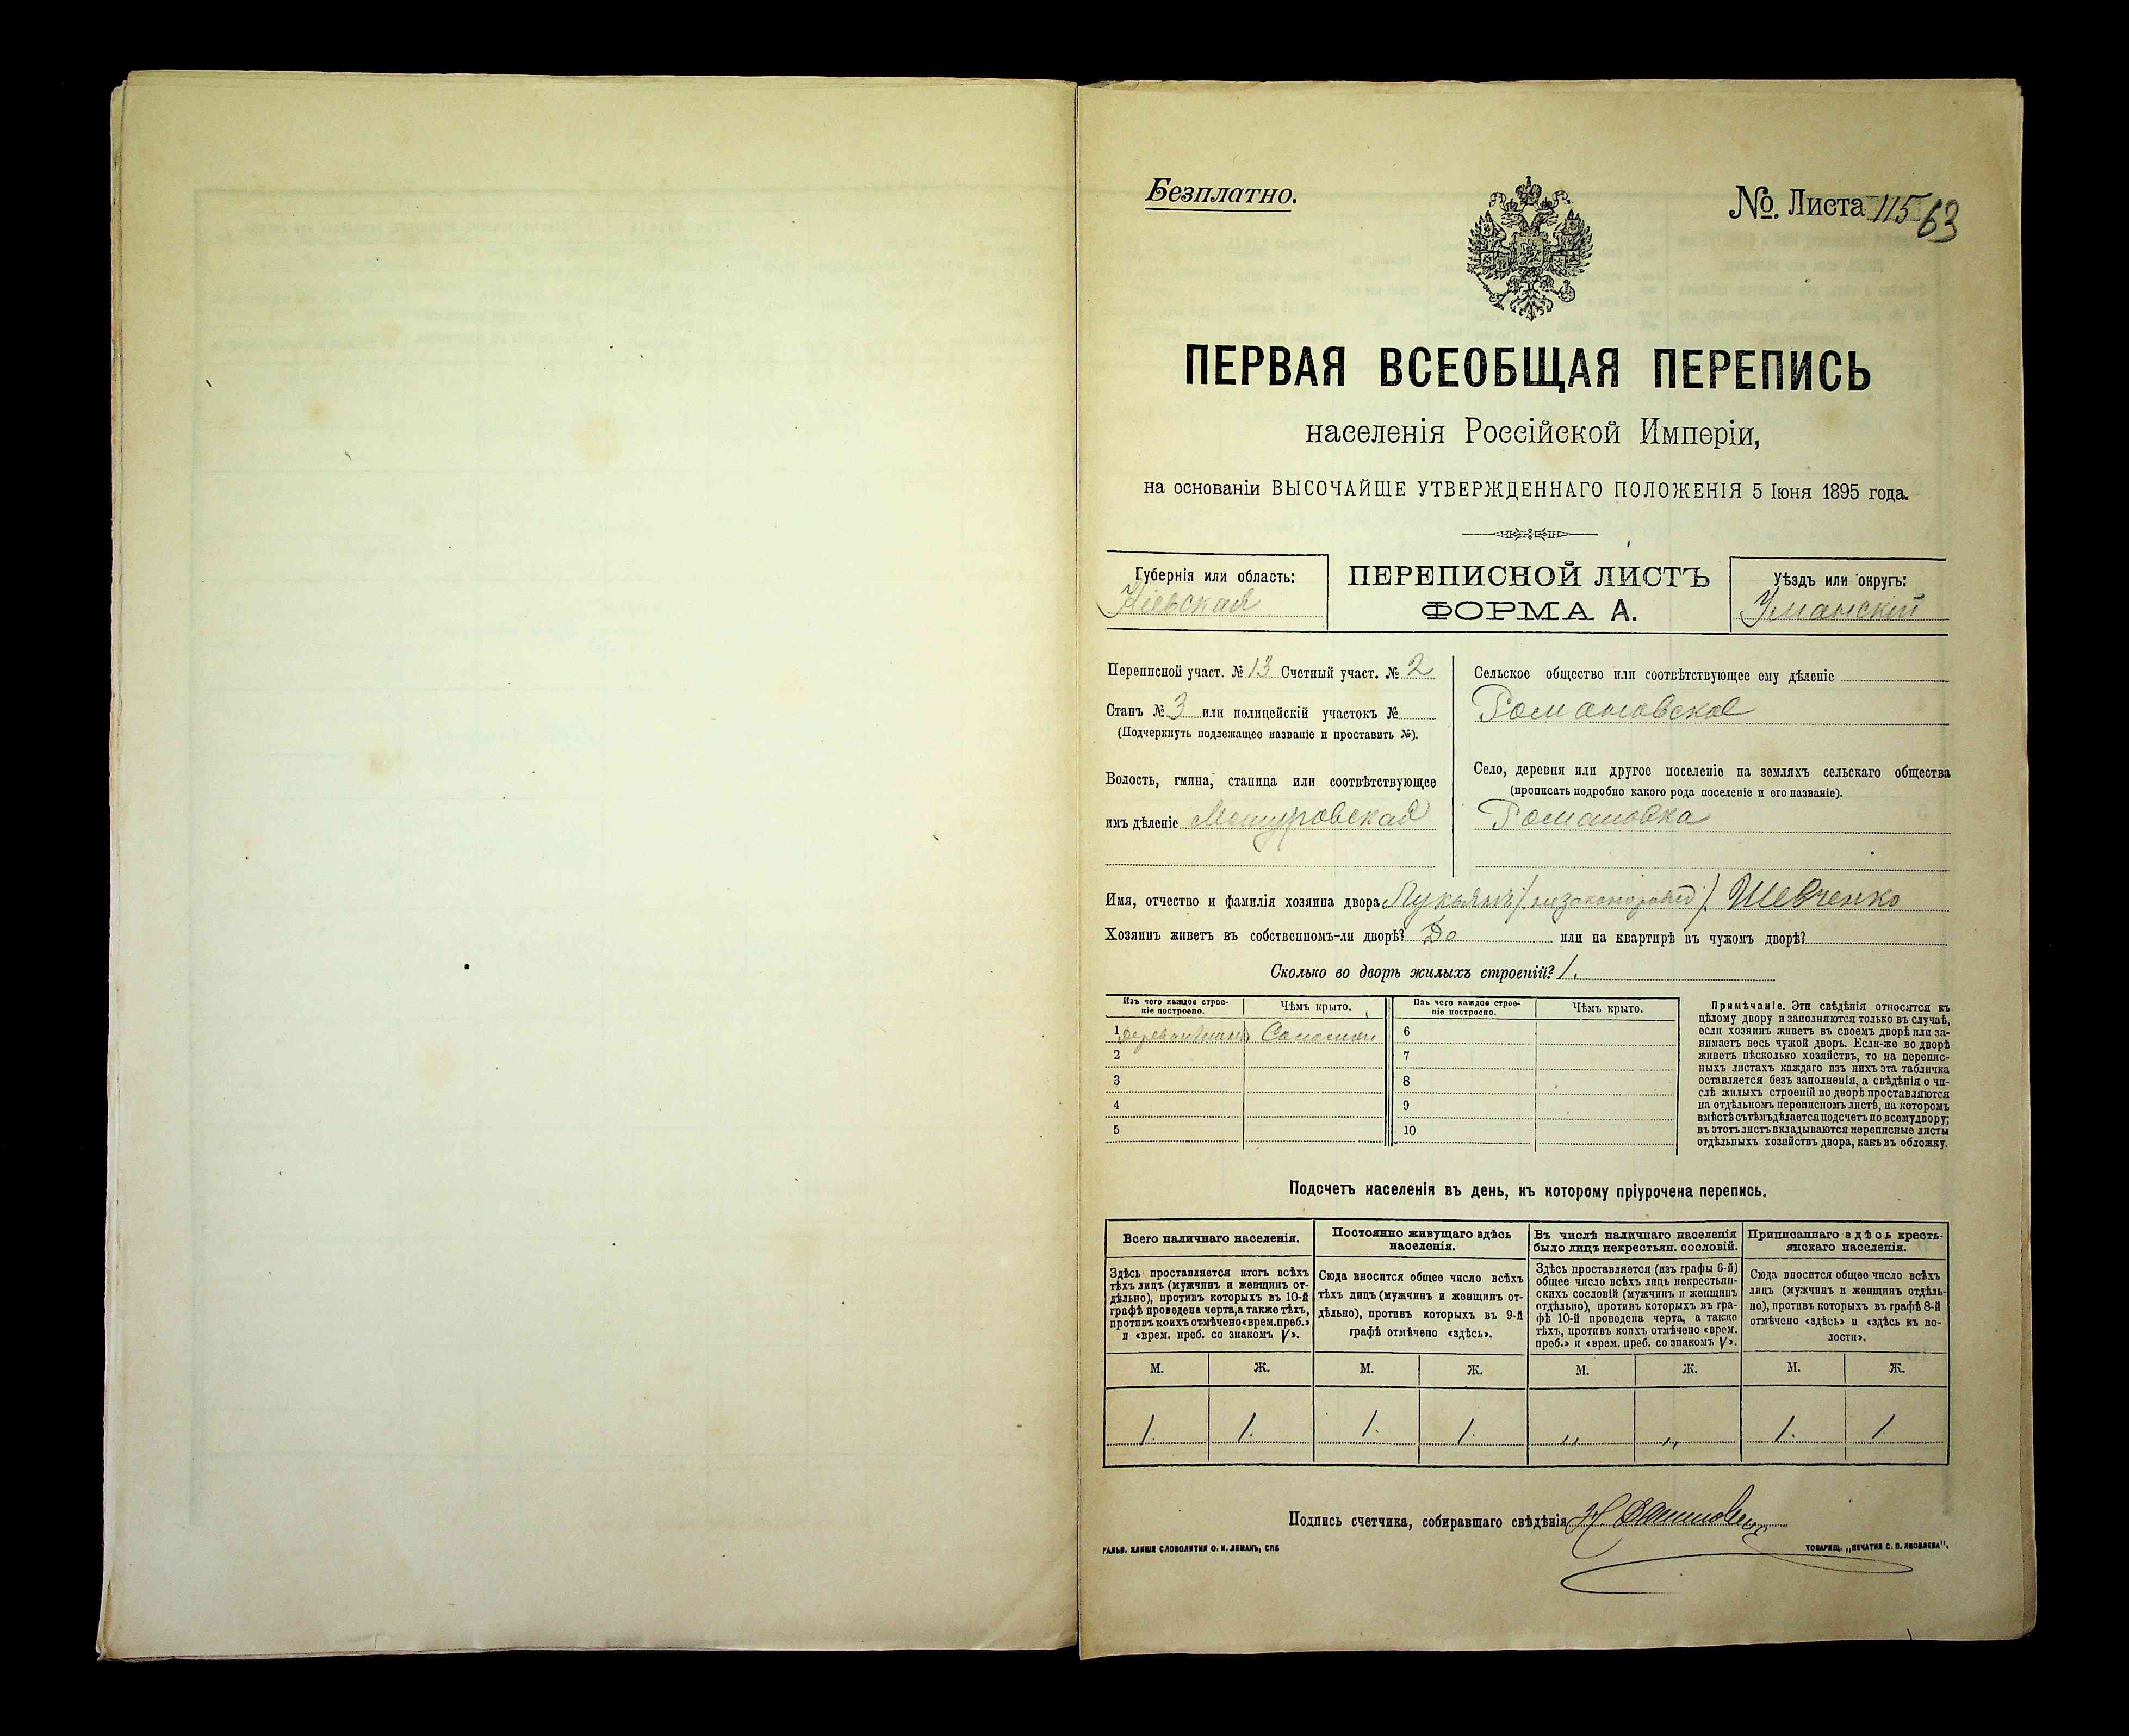 Безплатно.
№. Листа 115 63
ПЕРВАЯ ВСЕОБЩАЯ ПЕРЕПИСЬ
населенія Россійской Имперіи,
на основаніи ВЫСОЧАЙШЕ УТВЕРЖДЕННАГО ПОЛОЖЕНІЯ 5 Іюня 1895 года.
Губернія или область:
Кіевская
ПЕРЕПИСНОЙ ЛИСТЪ
ФОРМА А.
Уѣздъ или округъ:
Уманскій
Переписной участ. № 13 Счетный участ. № 2
Станъ № 3 или полицейскій участокъ №
(Подчеркнуть подлежащее названіе и проставить №).
Волость, гмина, станица или соотвѣтствующее
имъ дѣленіе
Сельское общество или соотвѣтствующее ему дѣленіе
Романовское
Село, деревня или другое поселеніе на земляхъ сельскаго общества
(прописать подробно какого рода поселеніе и его названіе).
Романовка
Имя, отчество и фамилія хозяина двора Лукьянъ Шевченко
Хозяинъ живетъ въ собственномъ-ли дворѣ? Да или на квартирѣ въ чужомъ дворѣ?
Сколько во дворѣ жилыхъ строеній? 1.
Изъ чего каждое строе-
ніе построено.
Чѣмъ крыто.
Изъ чего каждое строе-
ніе построено.
Чѣмъ крыто.
1 6
2 7
3 8
4 9
5 10
Примѣчаніе. Эти свѣдѣнія относятся къ
цѣлому двору и заполняются только въ случаѣ,
если хозяинъ живетъ въ своемъ дворѣ или за-
нимаетъ весь чужой дворъ. Если-же во дворѣ
живетъ нѣсколько хозяйствъ, то на перепис-
ныхъ листахъ каждаго изъ нихъ эта табличка
оставляется безъ заполненія, а свѣдѣнія о чи-
слѣ жилыхъ строеній во дворѣ проставляются
на отдѣльномъ переписномъ листѣ, на которомъ
вмѣстѣ съ тѣмъ дѣлается подсчетъ по всему двору;
въ этотъ листъ вкладываются переписные листы
отдѣльныхъ хозяйствъ двора, какъ въ обложку.
Подсчетъ населенія въ день, къ которому пріурочена перепись.
Всего наличнаго населенія.
Здѣсь проставляется итогъ всѣхъ
тѣхъ лицъ (мужчинъ и женщинъ от-
дѣльно), противъ которыхъ въ 10-й
графѣ проведена черта, а также тѣхъ,
противъ коихъ отмѣчено «врем. преб.»
и «врем. преб. со знакомъ V».
Постоянно живущаго здѣсь
населенія.
Сюда вносится общее число всѣхъ
тѣхъ лицъ (мужчинъ и женщинъ от-
дѣльно), противъ которыхъ въ 9-й
графѣ отмѣчено «здѣсь».
Въ числѣ наличнаго населенія
было лицъ некрестьян. сословій.
Здѣсь проставляется (изъ графы 6-й)
общее число всѣхъ лицъ некрестьян-
скихъ сословій (мужчинъ и женщинъ
отдѣльно), противъ которыхъ въ гра-
фѣ 10-й проведена черта, а также
тѣхъ, противъ коихъ отмѣчено «врем.
преб.» и «врем. преб. со знакомъ V».
Приписаннаго здѣсь кресть-
янскаго населенія.
Сюда вносится общее число всѣхъ
лицъ (мужчинъ и женщинъ отдѣль-
но), противъ которыхъ въ графѣ 8-й
отмѣчено «здѣсь» и «здѣсь къ во-
лости».
М. Ж. М. Ж. М. Ж. М. Ж.
1. 1. 1. 1. „ „ 1. 1
Подпись счетчика, собиравшаго свѣдѣнія
ГАЛЬВ. КЛИШЕ СЛОВОЛИТНИ О. И. ЛЕМАНЪ, СПБ
ТОВАРИЩ. „ПЕЧАТНЯ С. П. ЯКОВЛЕВА".